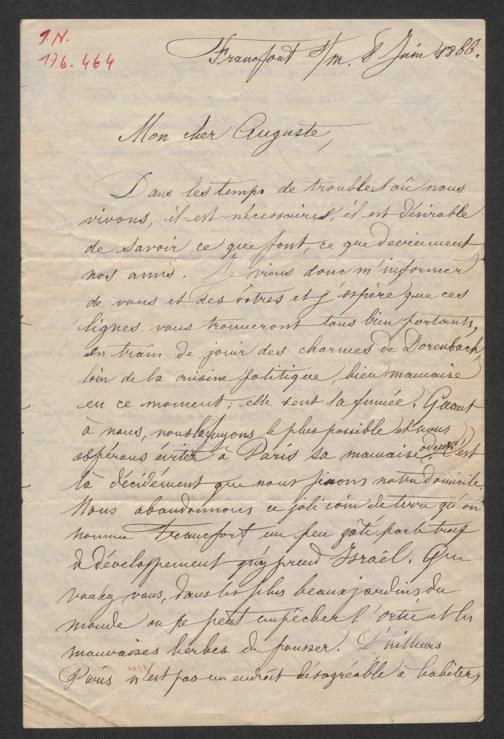 I.N.
176.464
Francfort s/m. 8 Juin 1866.
Mon cher Auguste,
Dans les temps de troubles où nous
vivons, il est nécessaire, il est désirable
de savoir ce que font, ce que deviennent
nos amis. Je viens donc m'informer
de vous et des vôtres et j'espère que ces
lignes vous trouveront tous bien portants,
en train de jouir des charmes de Dorenbach
loin de la cuisine politique, bien mauvaise
en ce moment; elle sent la fumée. Quant
à nous, nous la fuyons le plus possible et nous
espérons éviter à Paris sa mauvaise odeur. C'est
là décidément que nous fixons notre domicile.
Nous abandonnons ce joli coin de terre qu'on
nomme Francfort un peu gâté par le trop
de développement qu'y prend Israël. Que
voulez vous, dans les plus beaux jardins du
monde on ne peut empêcher l'ortie et les
mauvaises herbes de pousser. D'ailleurs
Paris n'est pas un endroit désagréable à habiter,